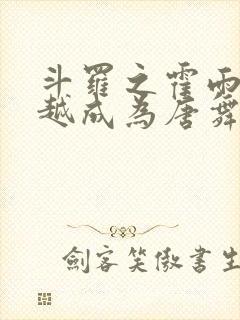 斗羅之霍雨
越成為唐舞
劍客笑傲書生